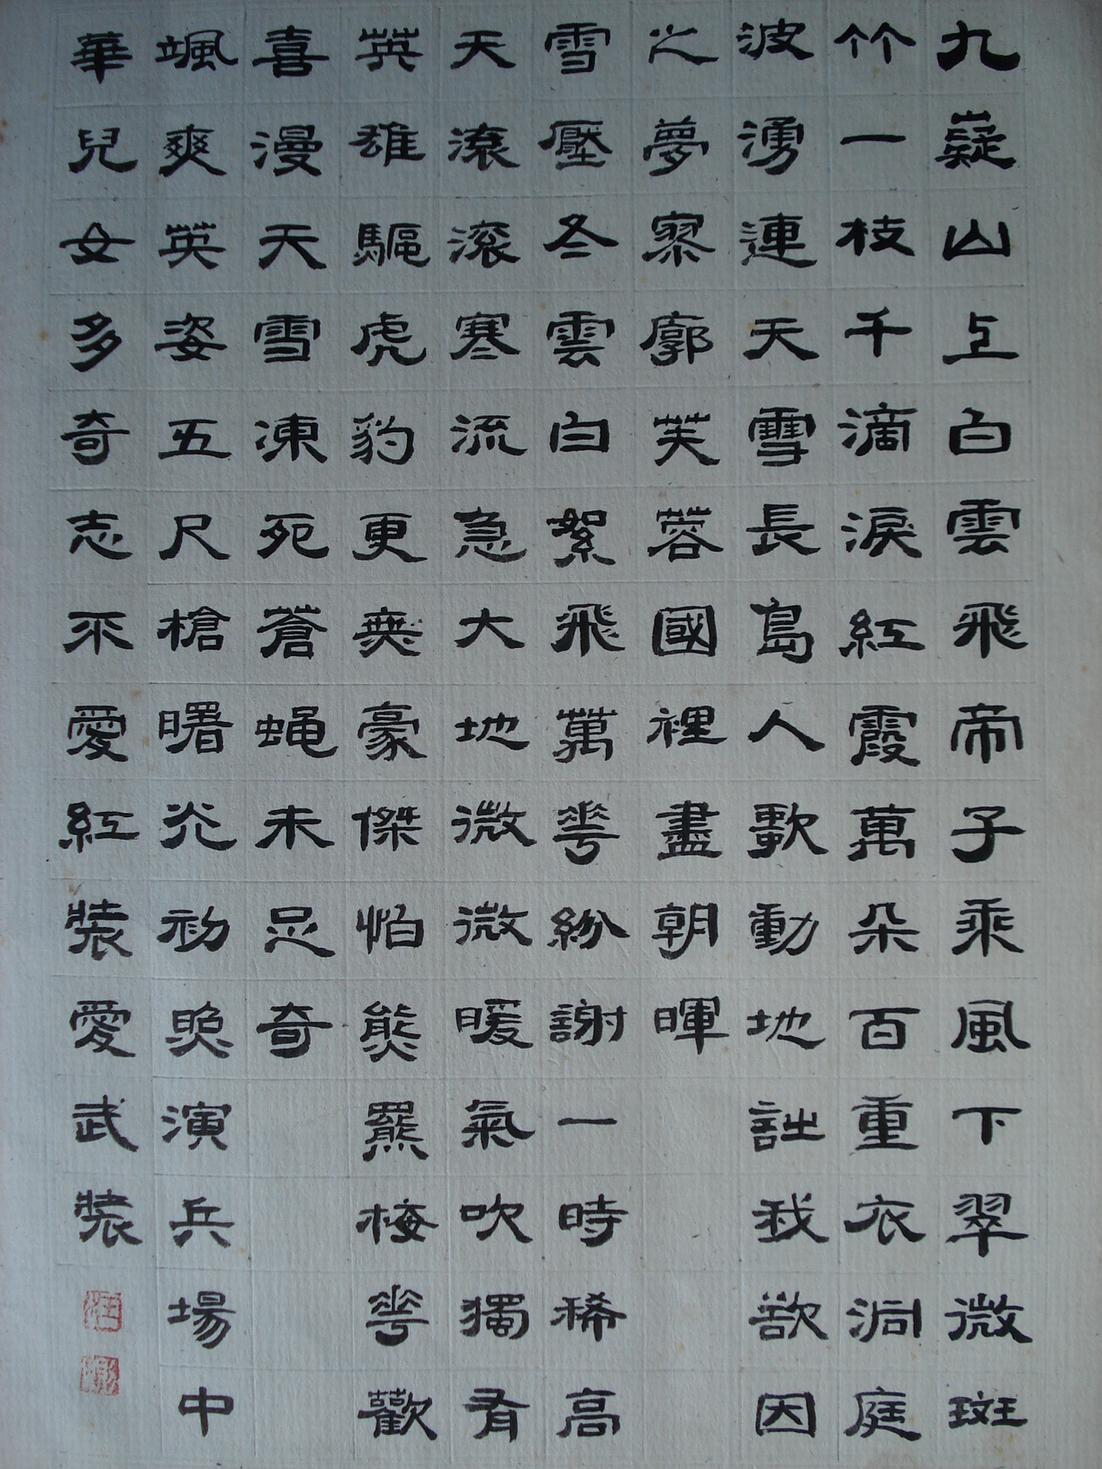 九嶷山上白雲飛帝子乘風下翠微斑
竹一枝千滴淚紅霞萬朵百重衣洞庭
波湧連天雪長島人歌動地詩我欲因
之夢寥廓芙蓉國裡盡朝暉
雪壓冬雲白絮飛萬花紛謝一時稀高
天滾滾寒流急大地微微暖氣吹獨有
英雄驅虎豹更無豪傑怕熊羆梅花歡
喜漫天雪凍死蒼蠅未足奇
颯爽英姿五尺槍曙光初照演兵場中
華兒女多奇志不愛紅裝愛武裝